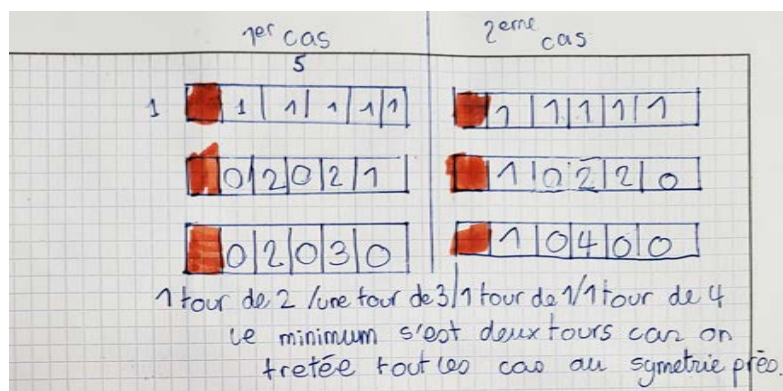 1er cas 2eme cas
5
1 1 1 1 1 1 1 1 1 1 1
0 2 0 2 1 1 0 2 2 0
0 2 0 3 0 1 0 4 0 0
1 tour de 2 /une tour de 3/1 tour de 1/1 tour de 4
Le minimum s'est deux tours car on
tretée tout les cas au symetrie près